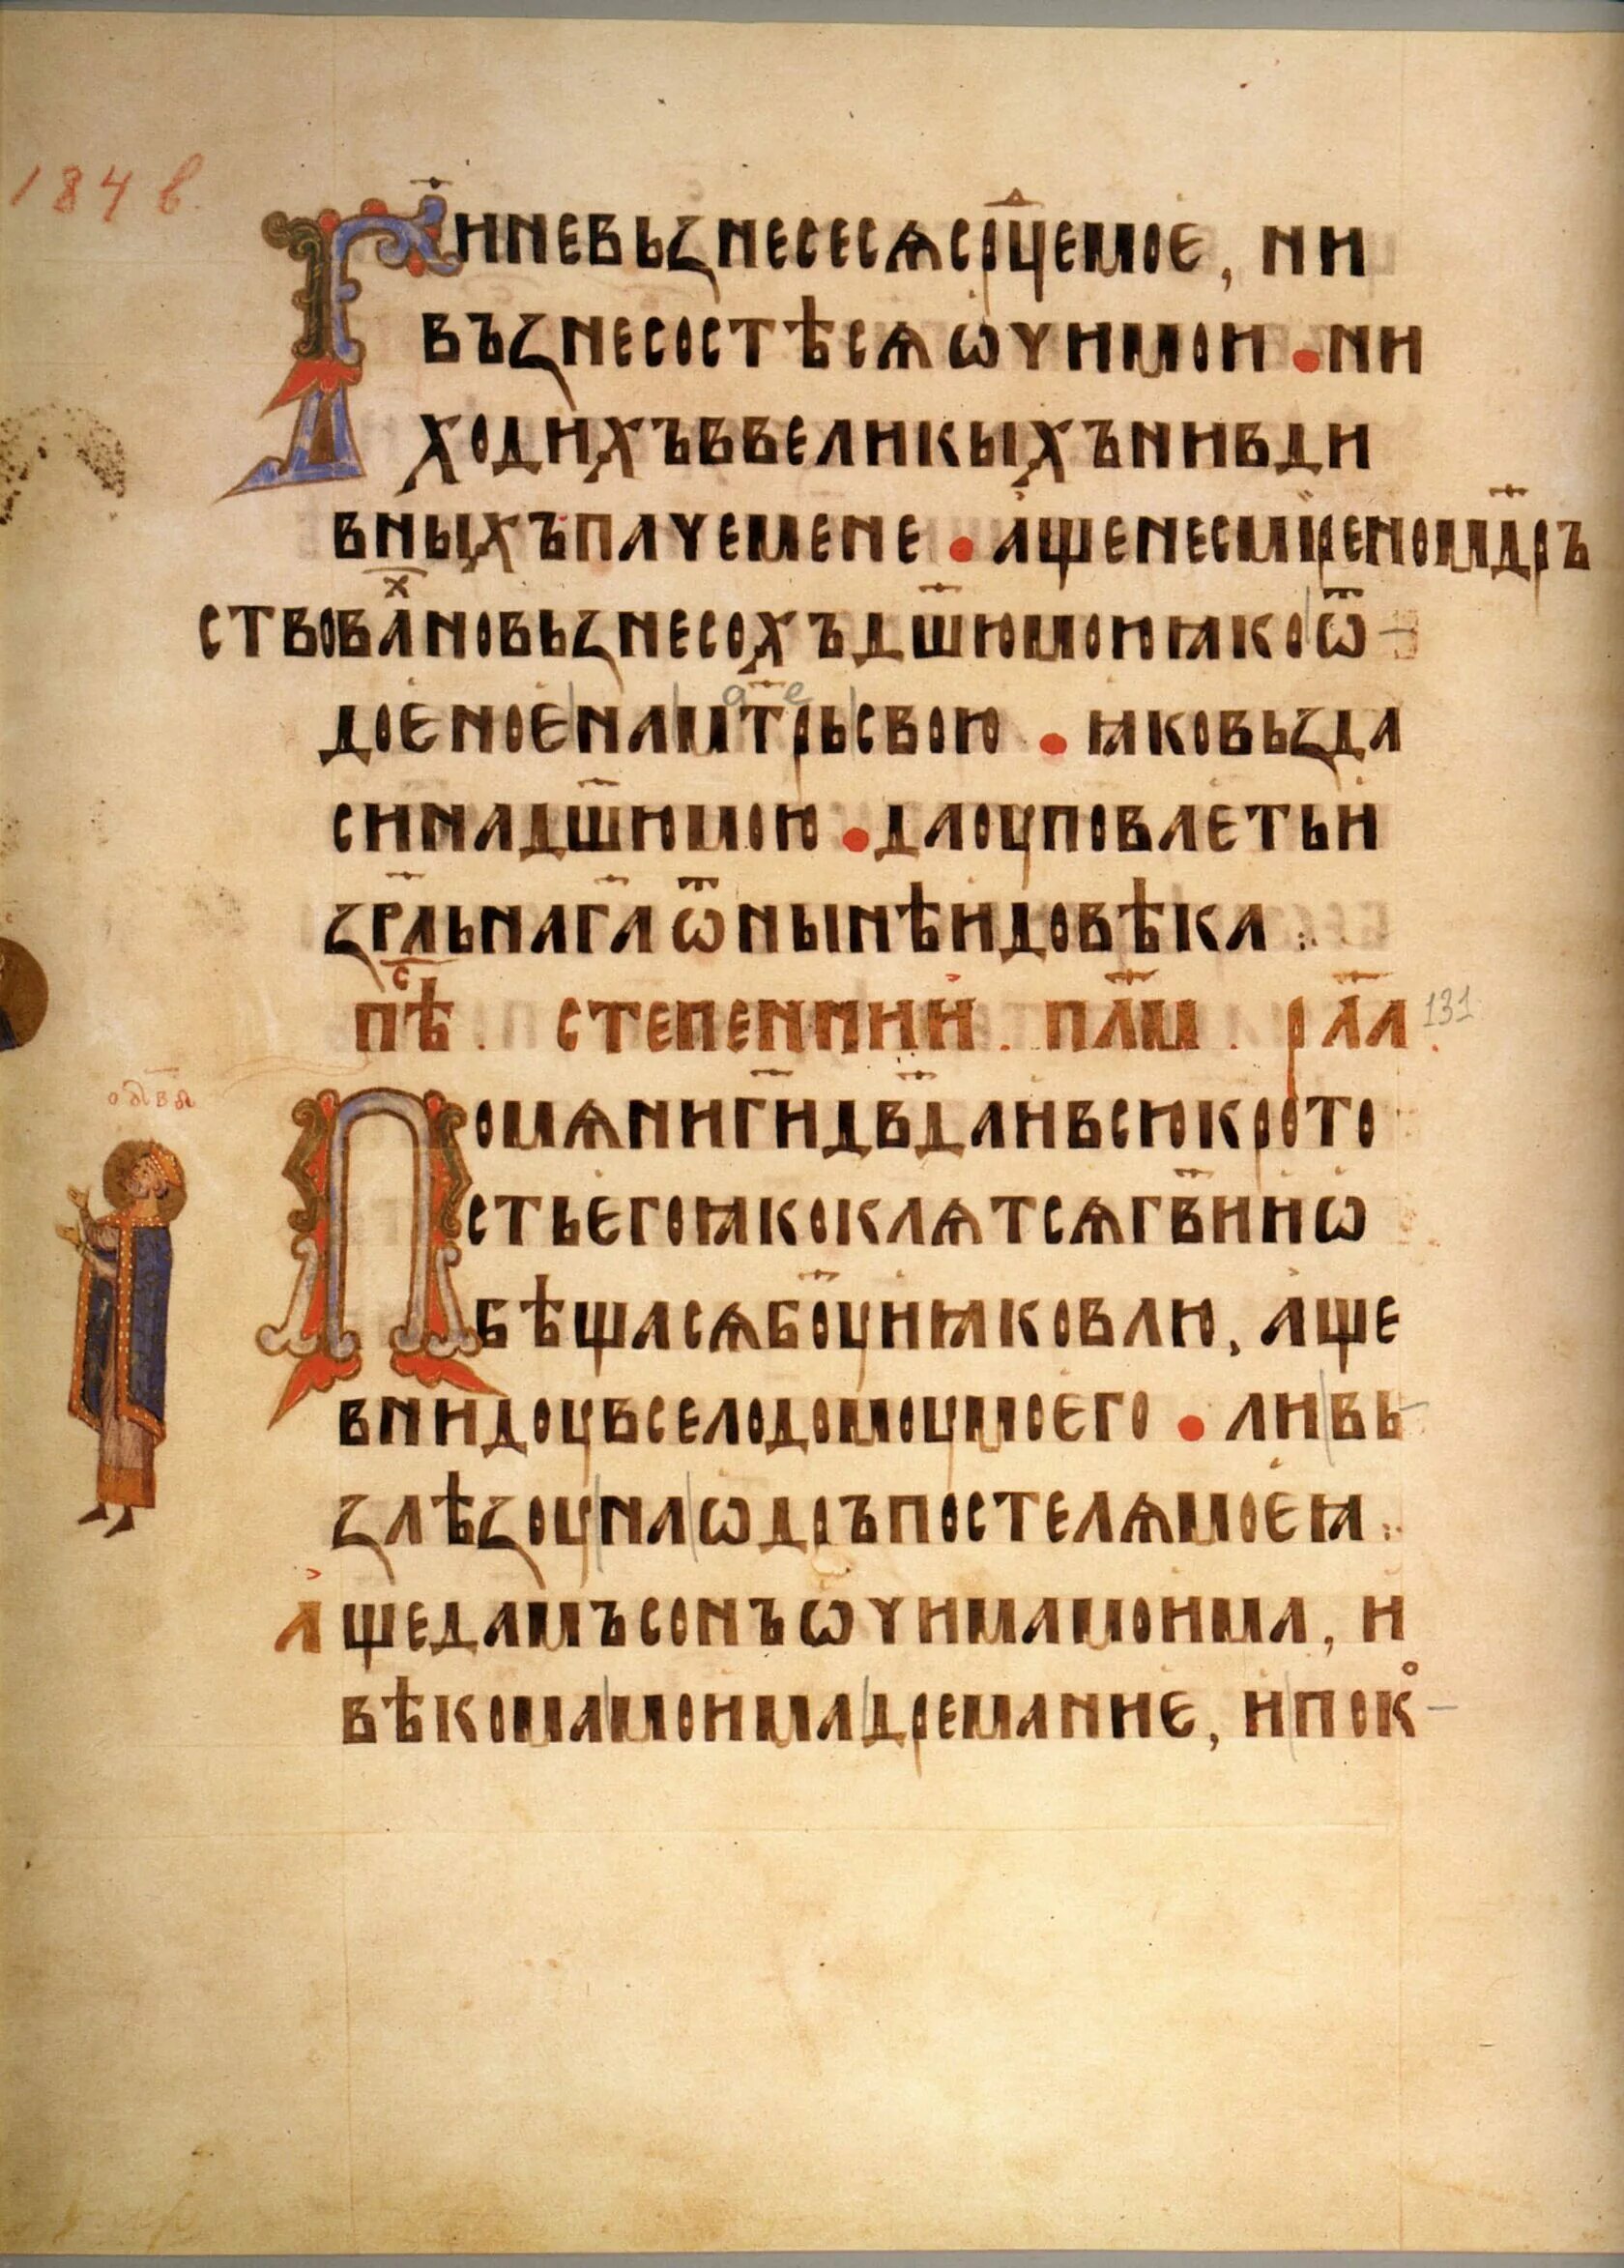 184 в.
Г҃И НЕ ВЬꙀНЕСЕ СѦ СРⷣЦЕ МОѤ, НИ
ВЪꙀНЕСОСТѢ СѦ Ѡ҆ЧИ МОИ • НИ
ХОДИХЪ В ВЕЛИКЫХЪ НИ В ДИ
ВНЫХЪ ПАЧЕ МЕНЕ • А҆ЩЕ НЕ СМѢРЕНОМ҃ДРЪ
СТВОВАⷯ НО ВЬꙀНЕСОХЪ Д҃ШЮ МОЮ ꙖКО Ѿ
ДОЕ҆НОЕ҆ НА М҃ТРЬ СВОЮ • ꙖКО ВЬꙀДА
СИ НА Д҃ШЮ МОЮ • ДА ОУПОВАѤТЬ И҆
ꙀР҃ЛЬ НА Г҃А Ѿ НЫНѢ И҆ ДО ВѢКА ⁘
ПѢⷭ . СТЕПЕННИИ҆ . ПЛ҃М . Р҃ЛА . 131
О Д҃ВДЪ
ПОМѦНИ Г҃И Д҃ВДА И҆ ВСЮ КРОТО
СТЬ Е҆ГО ꙖКО КЛѦТСѦ Г҃ВИ И҆ Ѡ
БѢЩАСѦ Б҃ОУ И҆ꙖКОВЛЮ, А҆ЩЕ
ВНИДОУ В СЕЛО ДОМОУ МОЕ҆ГО • ЛИ ВЬ
ꙀЛѢꙀОУ НА ѠДРЪ ПОСТЕЛѦ МОЕ҆Ꙗ ⁘
А҆ЩЕ ДАМЪ СОНЪ Ѡ҆ЧИМА МОИ҆МА, И҆
ВѢКОМА МОИ҆МА ДРЕМАНИЕ҆, И҆ ПОКⷪ